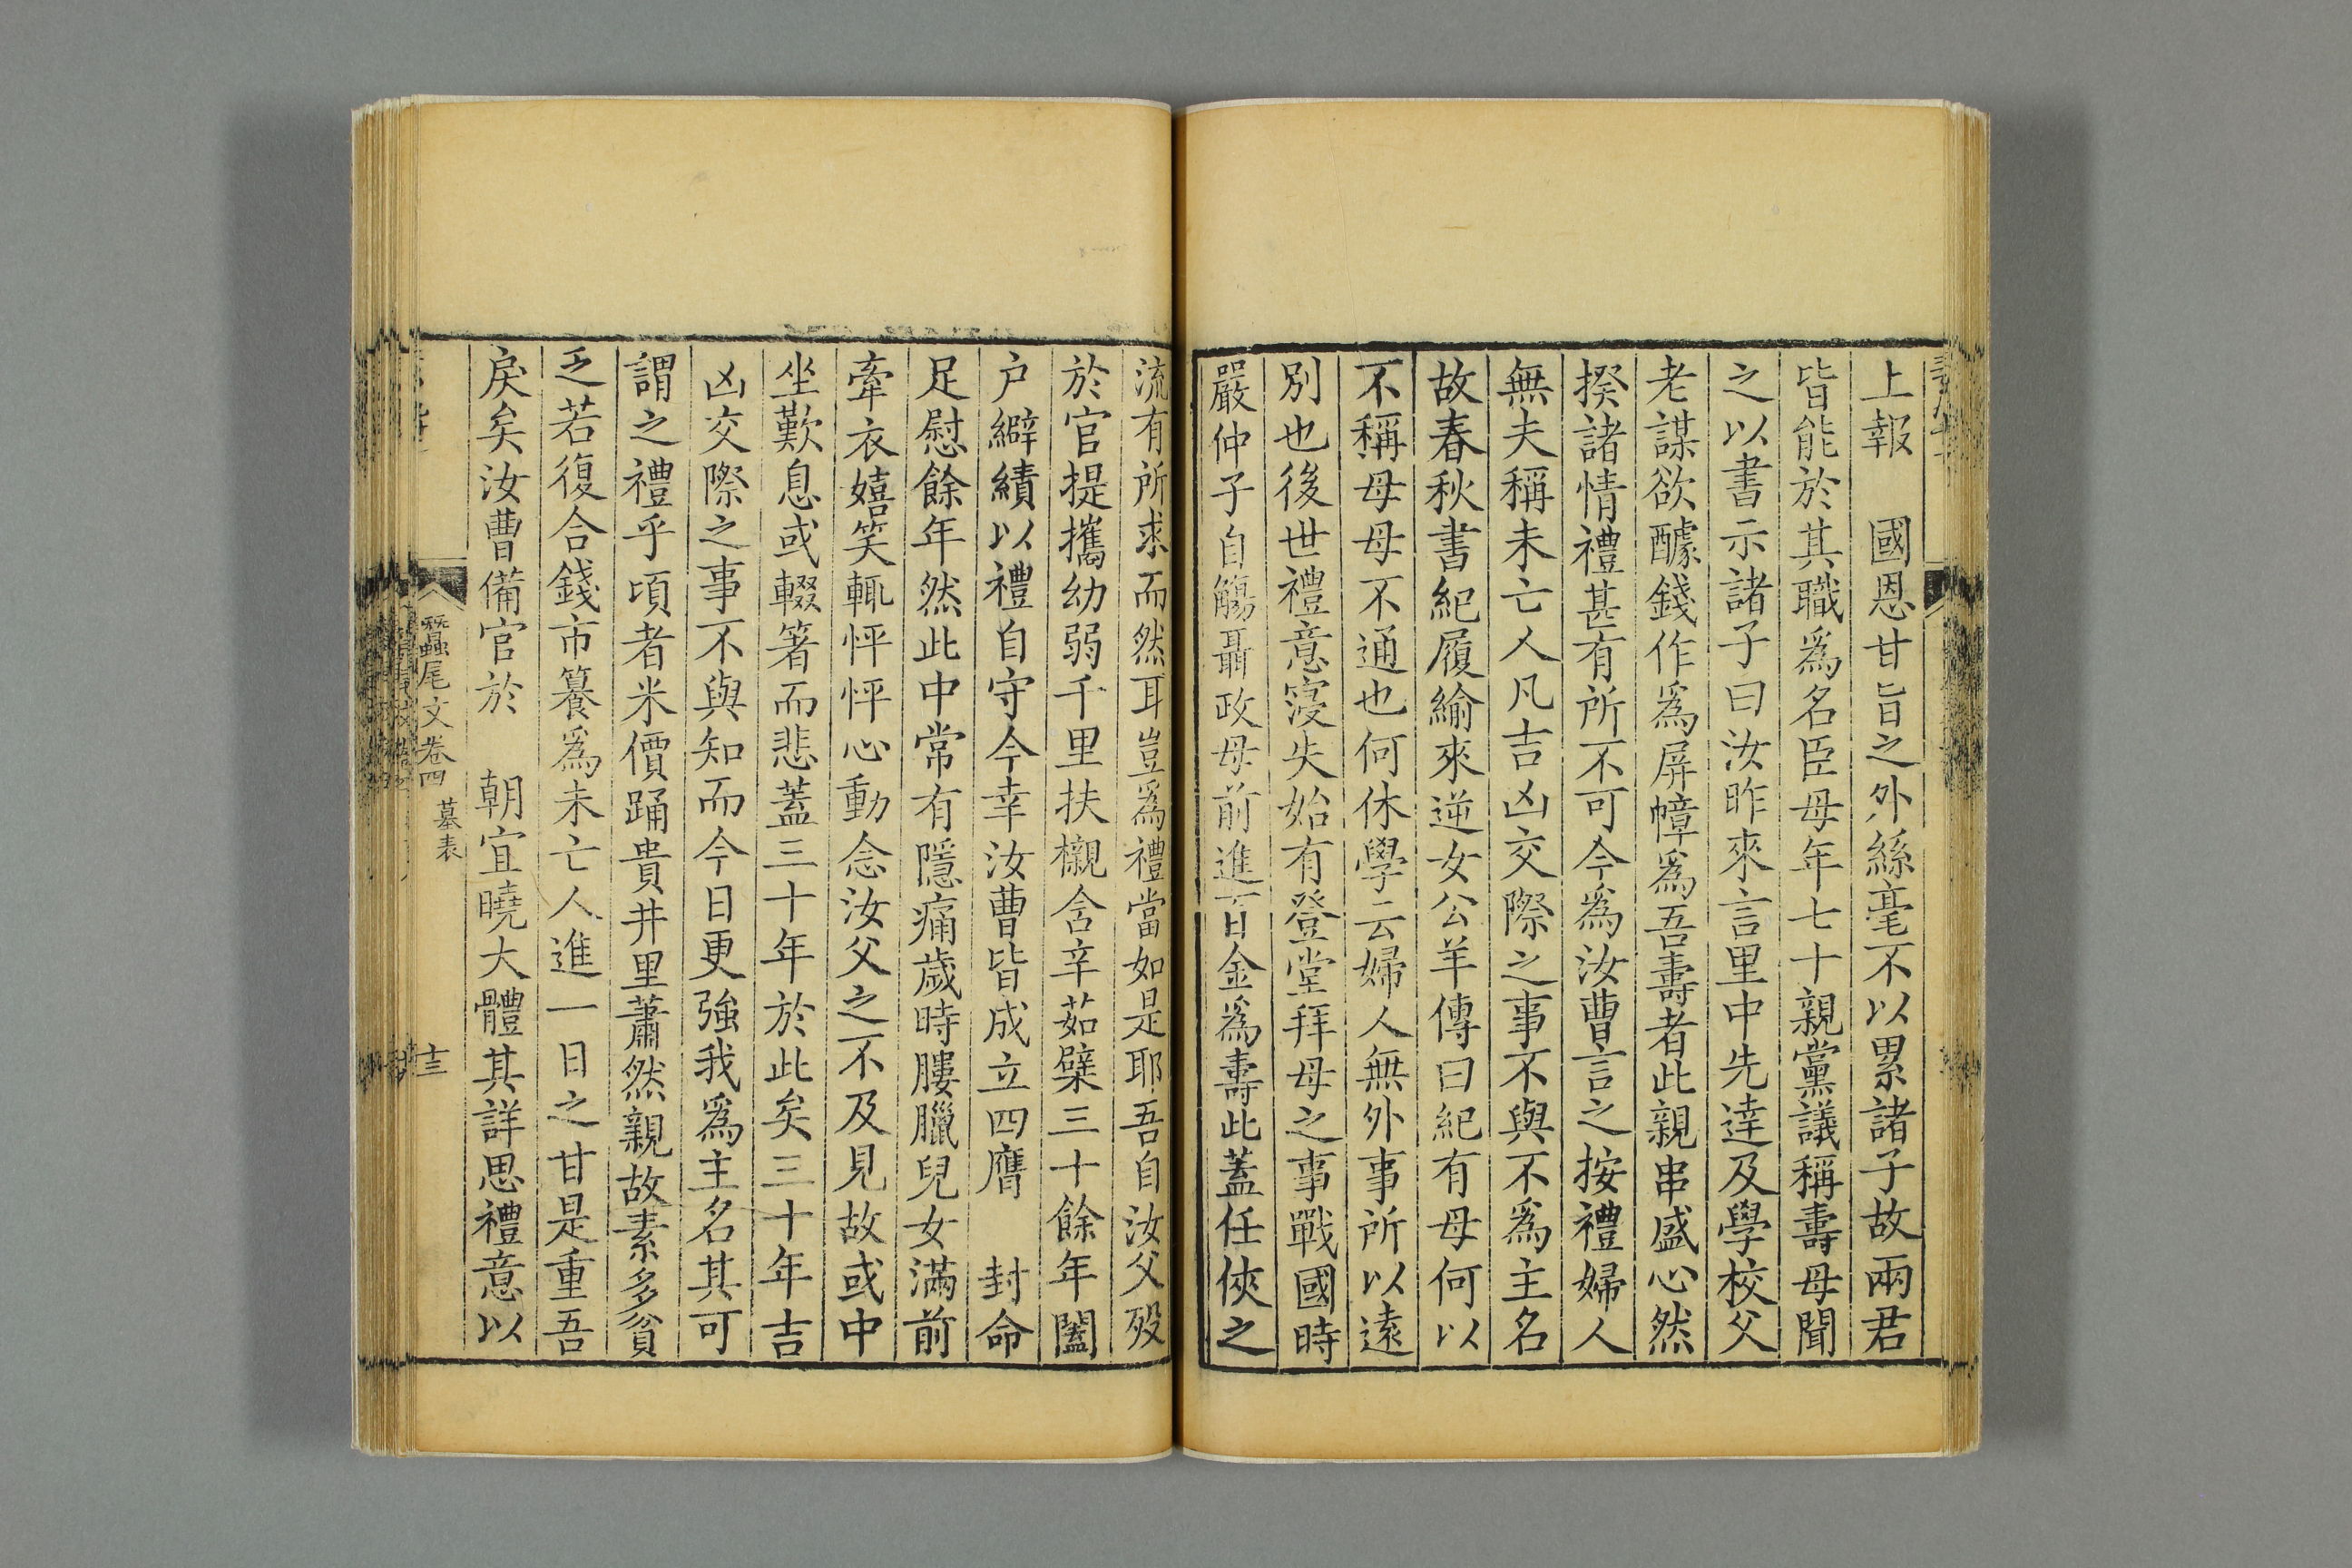 上報　國恩甘旨之外絲毫不以累諸子故兩君
皆能於其職爲名臣母年七十親黨議稱壽母聞
之以書示諸子曰汝昨來言里中先達及學校父
老謀欲醵錢作爲屏幛爲吾壽者此親串盛心然
揆諸情禮甚有所不可今爲汝曹言之按禮婦人
無夫稱未亡人凡吉凶交際之事不與不爲主名
故春秋書紀履緰來逆女公羊傳曰紀有母何以
不稱母母不通也何休學云婦人無外事所以遠
別也後世禮意寖失始有登堂拜母之事戰國時
嚴仲子自觴聶政母前進百金爲壽此蓋任俠之
流有所求而然耳豈爲禮當如是耶吾自汝父歿
於官提攜幼弱千里扶櫬含辛茹櫱三十餘年闔
户縪績以禮自守今幸汝曹皆成立四膺　封命
足慰餘年然此中常有隱痛歲時膢臘兒女滿前
牽衣嬉笑輒怦怦心動念汝父之不及見故或中
坐歎息或輟箸而悲蓋三十年於此矣三十年吉
凶交際之事不與知而今日更強我爲主名其可
謂之禮乎頃者米價踊貴井里蕭然親故素多貧
乏若復合錢市饌爲未亡人進一日之甘是重吾
戾矣汝曹備官於　朝宜曉大體其詳思禮意以
蠶尾文卷四
墓表
十三